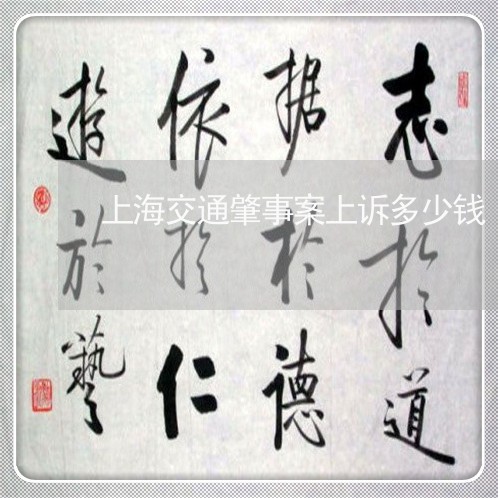 志於道
据於德
依於仁
遊於藝
上海交通肇事案上诉多少钱